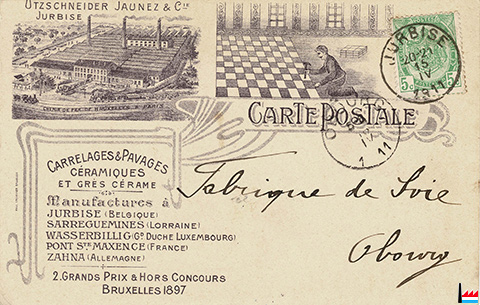 UTZSCHNEIDER JAUNEZ & CIE
JURBISE
CARTE POSTALE
JURBISE
20-21
15
IV
1911
5 C
5
IV
11
CARRELAGES & PAVAGES
CÉRAMIQUES
ET GRÈS CÉRAME
Manufactures à
JURBISE (BELGIQUE)
SARREGUEMINES (LORRAINE)
WASSERBILLIG (GD DUCHE LUXEMBOURG)
PONT STE MAXENCE (FRANCE)
ZAHNA (ALLEMAGNE)
2. GRANDS PRIX & HORS CONCOURS
BRUXELLES 1897
Fabrique de Soie
Obourg